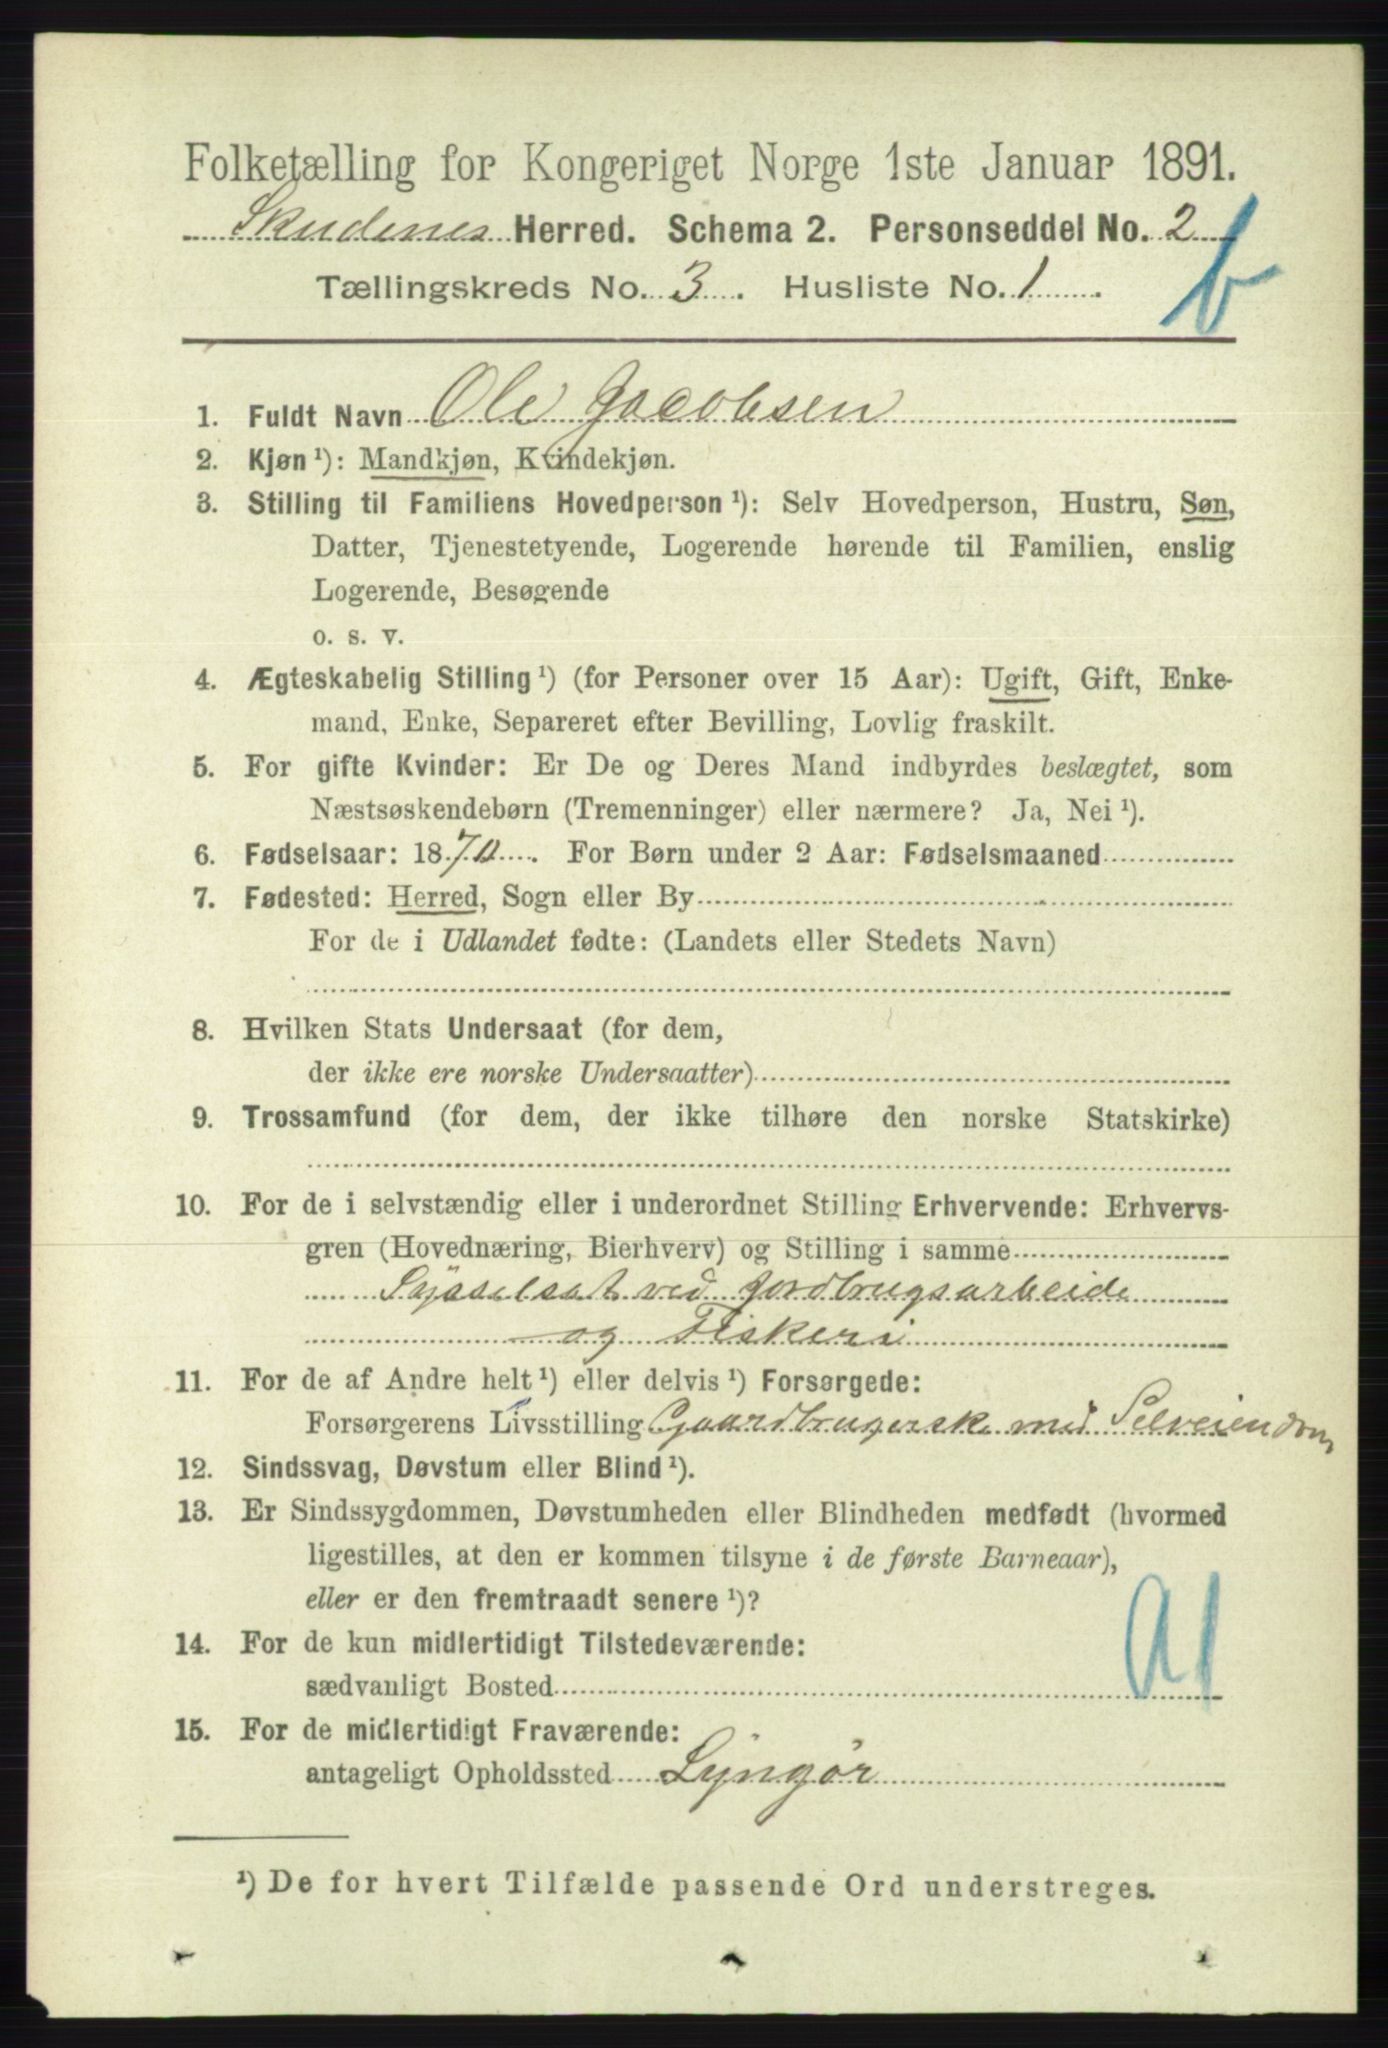 Folketælling for Kongeriget Norge 1ste Januar 1891.
Skudenes Herred. Schema 2. Personseddel No. 2
b
Tællingskreds No. 3. Husliste No. 1.
1. Fuldt Navn Ole Jacobsen
2. Kjøn ¹): Mandkjøn, Kvindekjøn.
3. Stilling til Familiens Hovedperson ¹): Selv Hovedperson, Hustru, Søn,
Datter, Tjenestetyende, Logerende hørende til Familien, enslig
Logerende, Besøgende
o. s. v.
4. Ægteskabelig Stilling ¹) (for Personer over 15 Aar): Ugift, Gift, Enke-
mand, Enke, Separeret efter Bevilling, Lovlig fraskilt.
5. For gifte Kvinder: Er De og Deres Mand indbyrdes beslægtet, som
Næstsøskendebørn (Tremenninger) eller nærmere? Ja, Nei ¹).
6. Fødselsaar: 1870. For Børn under 2 Aar: Fødselsmaaned
7. Fødested: Herred, Sogn eller By
For de i Udlandet fødte: (Landets eller Stedets Navn)
8. Hvilken Stats Undersaat (for dem,
der ikke ere norske Undersaatter)
9. Trossamfund (for dem, der ikke tilhøre den norske Statskirke)
10. For de i selvstændig eller i underordnet Stilling Erhvervende: Erhvervs-
gren (Hovednæring, Bierhverv) og Stilling i samme
Sysselsat ved Jordbrugsarbeide
og Fiskeri
11. For de af Andre helt ¹) eller delvis ¹) Forsørgede:
Forsørgerens Livsstilling Gaardbrugerske med Selveiendom
12. Sindssvag, Døvstum eller Blind ¹).
13. Er Sindssygdommen, Døvstumheden eller Blindheden medfødt (hvormed
ligestilles, at den er kommen tilsyne i de første Barneaar),
eller er den fremtraadt senere ¹)?
14. For de kun midlertidigt Tilstedeværende:
sædvanligt Bosted
15. For de midlertidigt Fraværende:
antageligt Opholdssted Lyngør
¹) De for hvert Tilfælde passende Ord understreges.